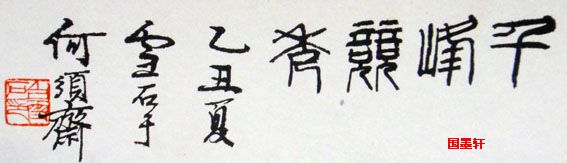 千峰競秀
乙丑夏
雪石于
何須齋
国墨轩